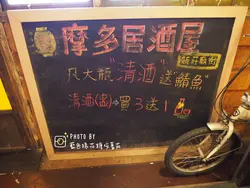 摩多居酒屋
凡大瓶"清酒"送鯖魚"
清酒(酌)⇒買3送1
PHOTO BY